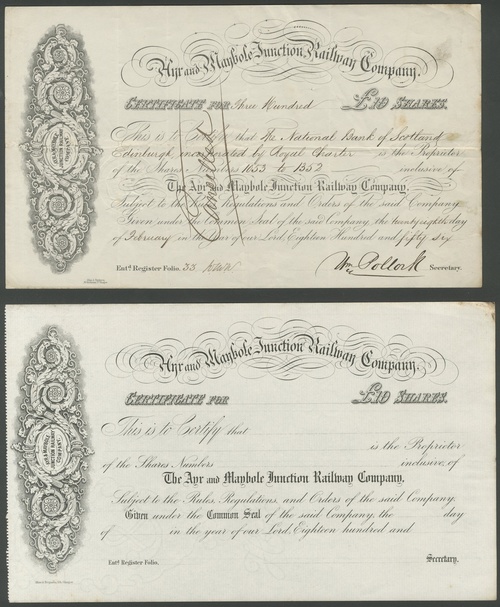 Ayr and Maybole Junction Railway Company.
Certificate for Three Hundred £10 Shares.
This is to Certify that The National Bank of Scotland
Edinburgh incorporated by Royal Charter is the Proprietor
of the Shares Numbers 1053 to 1352 inclusive of
The Ayr and Maybole Junction Railway Company,
Subject to the Rules, Regulations and Orders of the said Company
Given under the Common Seal of the said Company, the twenty eighth day
of February in the Year of our Lord, Eighteen Hundred and fifty six
Entd. Register Folio, 33
Wm. Pollock Secretary.
Cancelled
AYR & MAYBOLE JUNCTION RAILWAY COMPANY
Ayr and Maybole Junction Railway Company.
Certificate for £10 Shares.
This is to Certify that
is the Proprietor
of the Shares Numbers inclusive, of
The Ayr and Maybole Junction Railway Company,
Subject to the Rules, Regulations, and Orders of the said Company.
Given under the Common Seal of the said Company, the day
of in the year of our Lord, Eighteen hundred and
Entd. Register Folio, Secretary.
AYR & MAYBOLE JUNCTION RAILWAY COMPANY